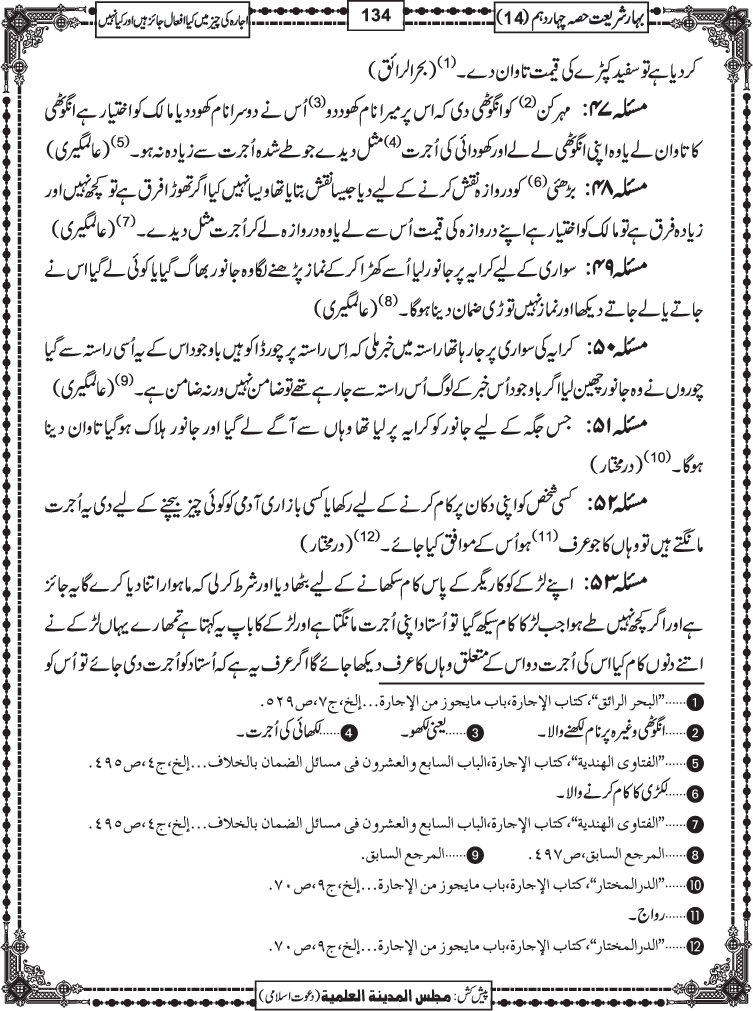 بہار شریعت حصہ چہاردہم (14)
134
اجارہ کی چیز میں کیا افعال جائز ہیں اور کیا نہیں
کر دیا ہے تو سفید کپڑے کی قیمت تاوان دے۔(1) (بحرالرائق)
مسئلہ ۴۷: مہرکن(2) کو انگوٹھی دی کہ اس پر میرا نام کھود دو(3) اُس نے دوسرا نام کھود دیا مالک کو اختیار ہے انگوٹھی
کا تاوان لے یا وہ اپنی انگوٹھی لے لے اور کھودائی کی اُجرت(4) مثل دیدے جو طے شدہ اُجرت سے زیادہ نہ ہو۔(5) (عالمگیری)
مسئلہ ۴۸: بڑھئی(6) کو دروازہ نقش کرنے کے لیے دیا جیسا نقش بتایا تھا ویسا نہیں کیا اگر تھوڑا فرق ہے تو کچھ نہیں اور
زیادہ فرق ہے تو مالک کو اختیار ہے اپنے دروازہ کی قیمت اُس سے لے یا وہ دروازہ لے کر اُجرت مثل دیدے۔(7) (عالمگیری)
مسئلہ ۴۹: سواری کے لیے کرایہ پر جانور لیا اُسے کھڑا کر کے نماز پڑھنے لگا وہ جانور بھاگ گیا یا کوئی لے گیا اس نے
جاتے یا لے جاتے دیکھا اور نماز نہیں توڑی ضمان دینا ہوگا۔(8) (عالمگیری)
مسئلہ ۵۰: کرایہ کی سواری پر جا رہا تھا راستہ میں خبر ملی کہ اِس راستہ پر چور ڈاکو ہیں باوجود اس کے یہ اُسی راستہ سے گیا
چوروں نے وہ جانور چھین لیا اگر باوجود اُس خبر کے لوگ اُس راستہ سے جا رہے تھے تو ضامن نہیں ورنہ ضامن ہے۔(9) (عالمگیری)
مسئلہ ۵۱: جس جگہ کے لیے جانور کو کرایہ پر لیا تھا وہاں سے آگے لے گیا اور جانور ہلاک ہوگیا تاوان دینا
ہوگا۔(10) (درمختار)
مسئلہ ۵۲: کسی شخص کو اپنی دکان پر کام کرنے کے لیے رکھا یا کسی بازاری آدمی کو کوئی چیز بیچنے کے لیے دی یہ اُجرت
مانگتے ہیں تو وہاں کا جو عرف(11) ہو اُس کے موافق کیا جائے۔(12) (درمختار)
مسئلہ ۵۳: اپنے لڑکے کو کاریگر کے پاس کام سکھانے کے لیے بٹھا دیا اور شرط کر لی کہ ماہوار اتنا دیا کرے گا یہ جائز
ہے اور اگر کچھ نہیں طے ہوا جب لڑکا کام سیکھ گیا تو اُستاد اپنی اُجرت مانگتا ہے اور لڑکے کا باپ یہ کہتا ہے تمھارے یہاں لڑکے نے
اتنے دنوں کام کیا اس کی اُجرت دو اس کے متعلق وہاں کا عرف دیکھا جائے گا اگر عرف یہ ہے کہ اُستاد کو اُجرت دی جائے تو اُس کو
1 ......"البحر الرائق"، کتاب الإجارة، باب مایجوز من الإجارة...إلخ، ج۷، ص۵۲۹.
2 ......انگوٹھی وغیرہ پر نام لکھنے والا۔ 3 ......یعنی لکھو۔ 4 ......لکھائی کی اُجرت۔
5 ......"الفتاوی الهندية"، کتاب الإجارة، الباب السابع والعشرون فی مسائل الضمان بالخلاف...إلخ، ج٤، ص٤٩٥.
6 ......لکڑی کا کام کرنے والا۔
7 ......"الفتاوی الهندية"، کتاب الإجارة، الباب السابع والعشرون فی مسائل الضمان بالخلاف...إلخ، ج٤، ص٤٩٥.
8 ......المرجع السابق، ص٤٩٧. 9 ......المرجع السابق.
10 ......"الدرالمختار"، کتاب الإجارة، باب مایجوز من الإجارة...إلخ، ج٩، ص٧٠.
11 ......رواج۔
12 ......"الدرالمختار"، کتاب الإجارة، باب مایجوز من الإجارة...إلخ، ج٩، ص٧٠.
پیش کش: مجلس المدینة العلمیة (دعوت اسلامی)